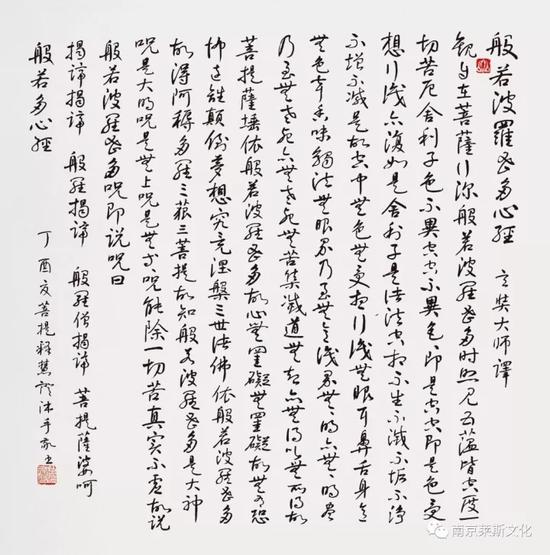 般若波羅蜜多心經 玄奘大師譯
觀自在菩薩行深般若波羅蜜多時照見五蘊皆空度一
切苦厄舍利子色不異空空不異色色即是空空即是色受
想行識亦復如是舍利子是諸法空相不生不滅不垢不淨
不增不減是故空中無色無受想行識無眼耳鼻舌身意
無色聲香味觸法無眼界乃至無意識界無無明亦無無明盡
乃至無老死亦無老死盡無苦集滅道無智亦無得以無所得故
菩提薩埵依般若波羅蜜多故心無罣礙無罣礙故無有恐
怖遠離顛倒夢想究竟涅槃三世諸佛依般若波羅蜜多
故得阿耨多羅三藐三菩提故知般若波羅蜜多是大神
咒是大明咒是無上咒是無等等咒能除一切苦真實不虛故說
般若波羅蜜多咒即說咒曰
揭諦揭諦 般羅揭諦 般羅僧揭諦 菩提薩婆呵
般若多心經 丁酉夏菩提釋慧沐手敬書
南京莱斯文化